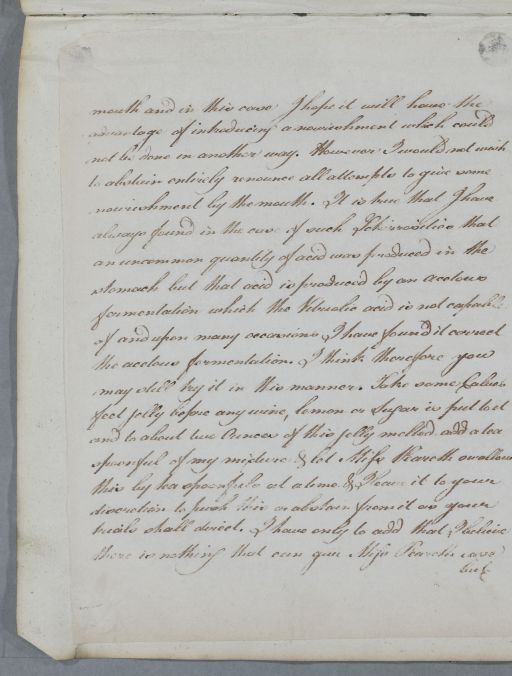 mouth and in this case I hope it will have the
advantage of introducing a nourishment which could
not be done in another way. However I would not wish
to abstain entirely renounce all attempts to give some
nourishment by the mouth. It is true that I have
always found in the case of such Schirrosities that
an uncommon quantity of acid was produced in the
stomach but that acid is produced by an acetous
fermentation which the Vitriolic acid is not capable
of and upon many occasions I have found it correct
the acetous fermentation. I think therefore you
may still try it in this manner. Take some Calves
feet jelly before any wine, lemon or Sugar is put to it
and to about two Ounces of this jelly melted add a tea
spoonful of my mixture & let Miss Reareth swallow
this by tea spoonfuls at a time & I leave it to your
discretion to push this or abstain from it as your
trials shall direct. I have only to add that I believe
there is nothing that can give Miss Reareth ease
but